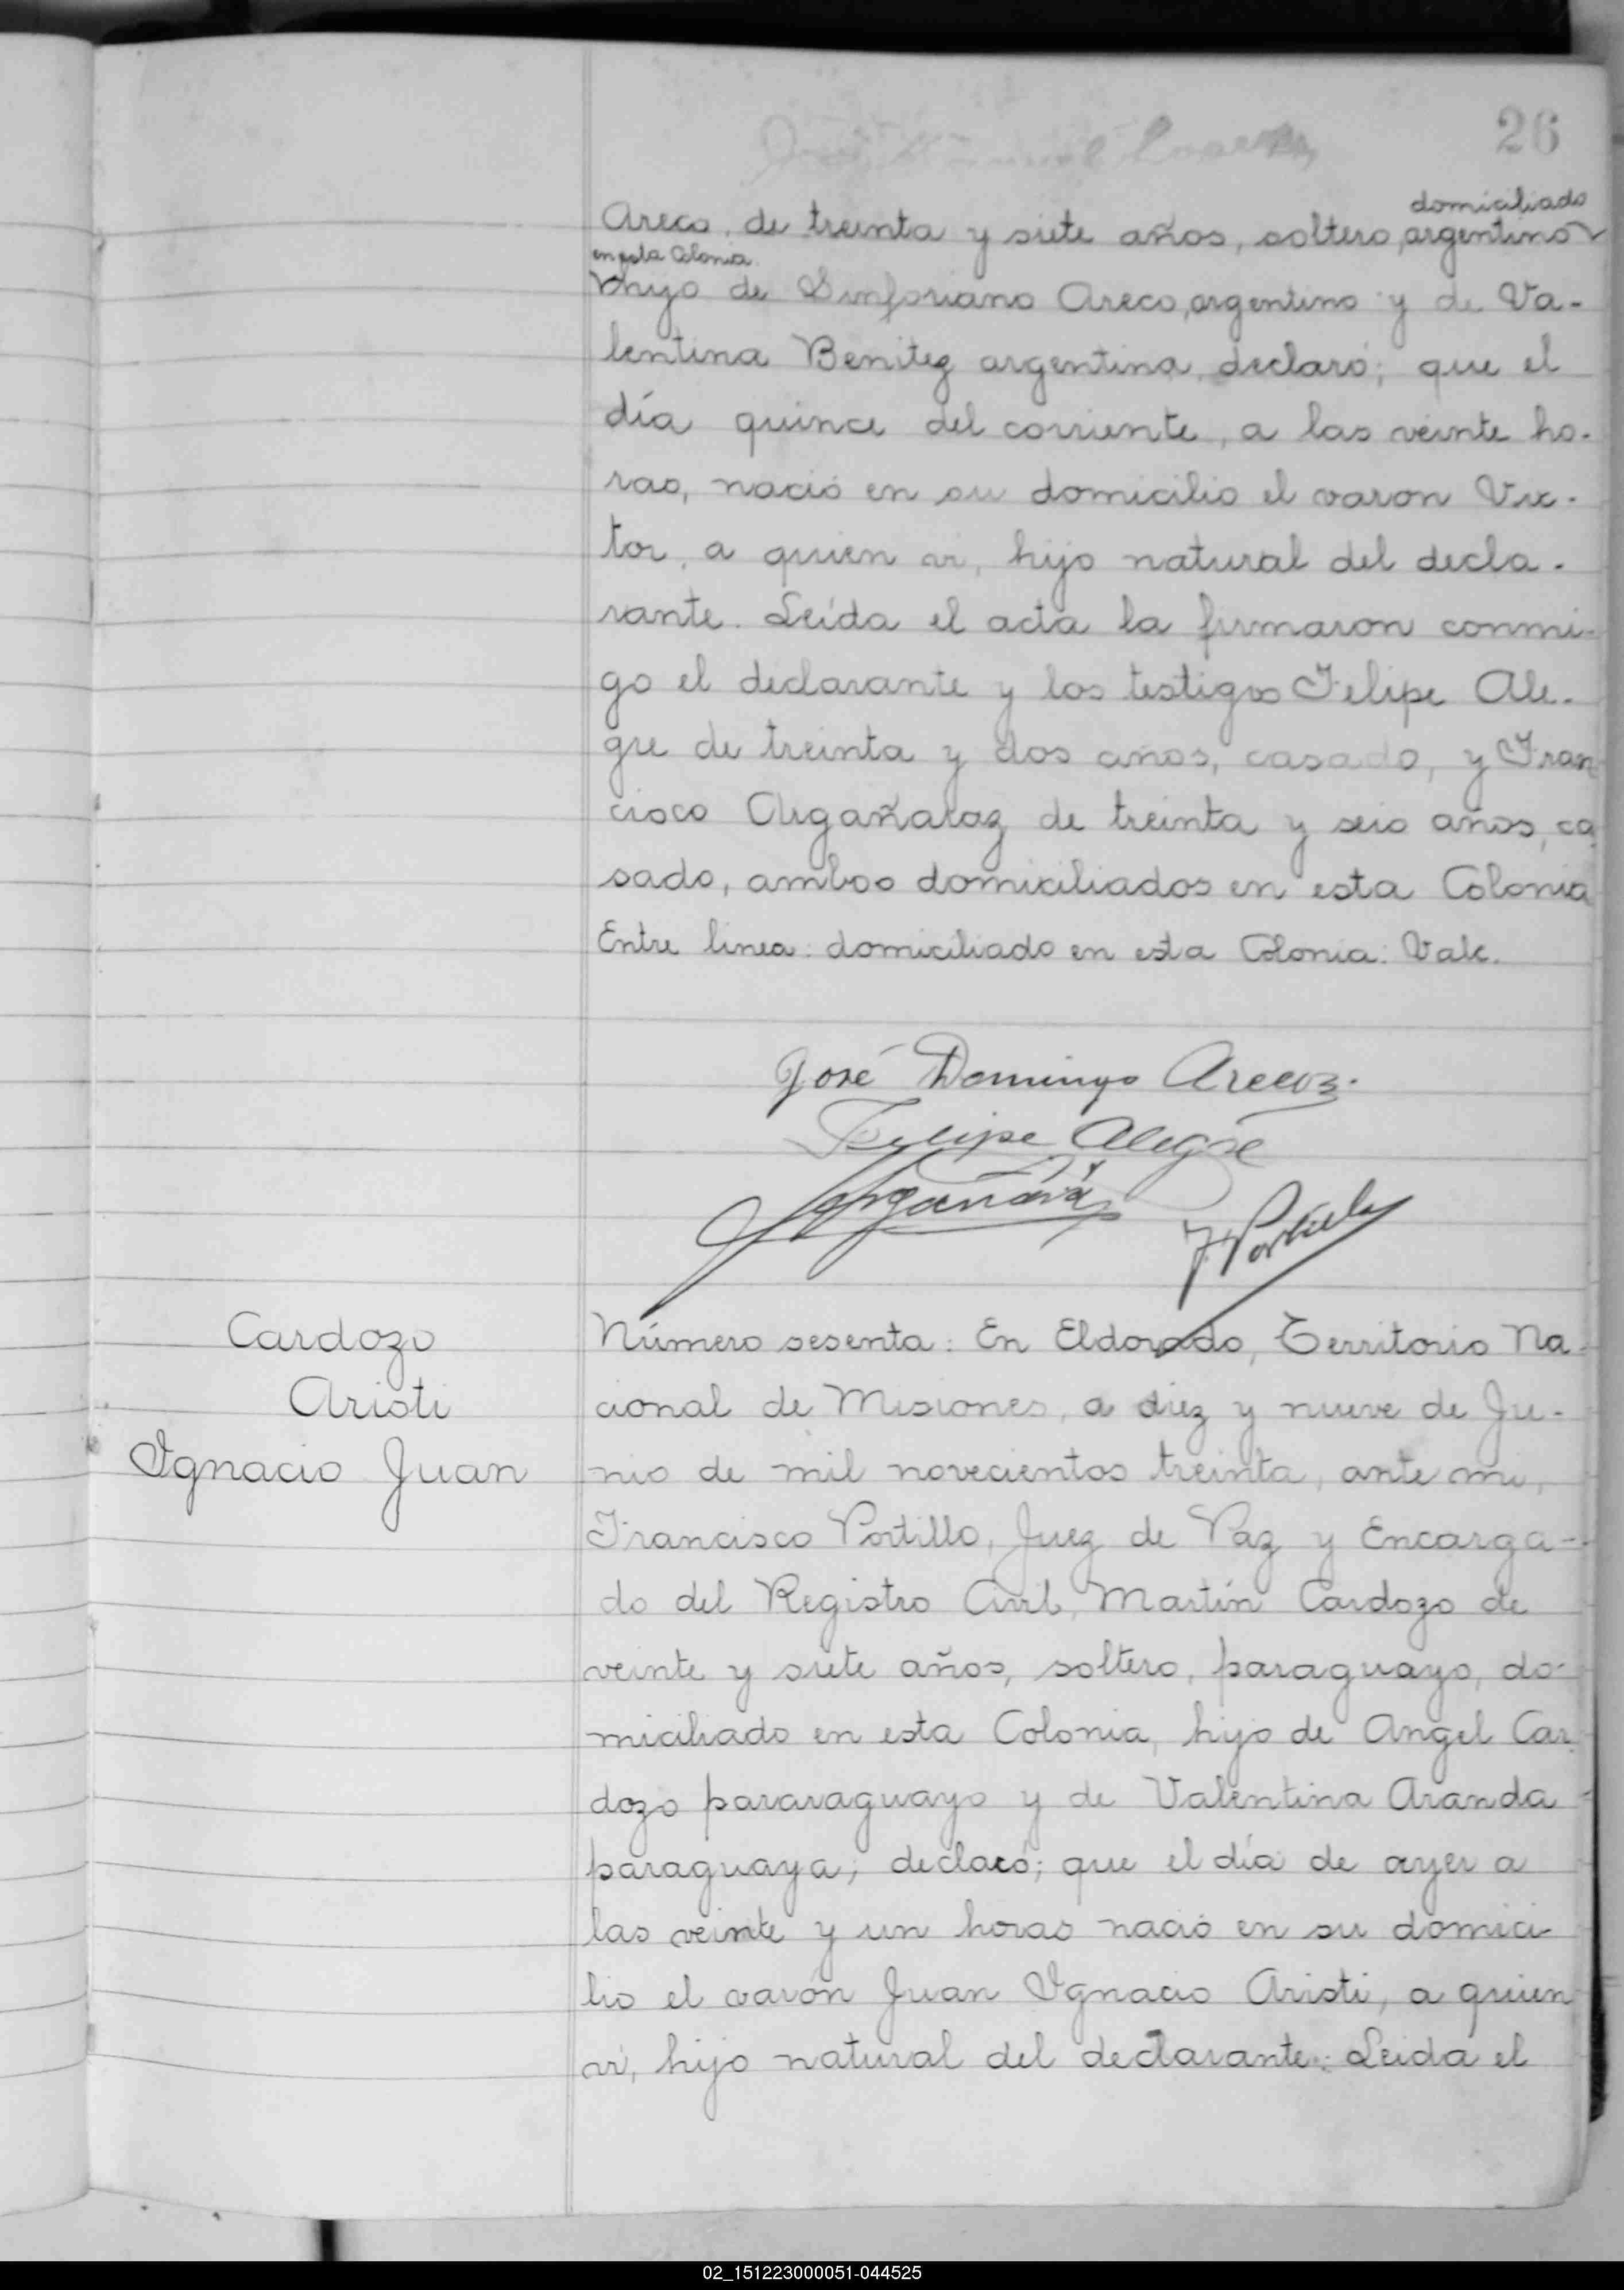 26
domiciliado
Areco, de treinta y siete años, soltero, argentino
en esta Colonia.
hijo de Sinforiano Areco, argentino y de Va-
lentina Benitez argentina, declaró; que el
día quince del corriente, a las veinte ho-
ras, nació en su domicilio el varon Vic-
tor, a quien vi, hijo natural del decla-
rante. Leída el acta la firmaron conmi-
go el declarante y los testigos Felipe Ale-
gre de treinta y dos años, casado, y Fran
cisco Argañaraz de treinta y seis años, ca
sado, ambos domiciliados en esta Colonia
Entre linea: domiciliado en esta Colonia: Vale.
José Domingo
Felipe Alegre
Cardozo
Aristi
Ygnacio Juan
Número sesenta: En Eldorado, Territorio Na-
cional de Misiones, a diez y nueve de Ju-
nio de mil novecientos treinta, ante mi,
Francisco Portillo, Juez de Paz y Encarga-
do del Registro Civil, Martín Cardozo de
veinte y siete años, soltero, paraguayo, do-
miciliado en esta Colonia, hijo de Angel Car
dozo pararaguayo y de Valentina Aranda
paraguaya; declaró; que el día de ayer a
las veinte y un horas nació en su domici-
lio el varón Juan Ygnacio Aristi, a quien
vi, hijo natural del declarante: Leida el
02_151223000051-044525